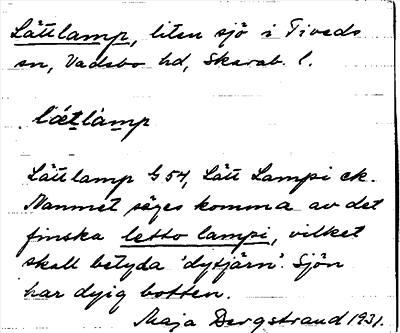 Lättlamp, liten sjö i Tiveds
sn, Vadsbo hd, Skarab. l.
lätlamp
Lättlamp G 54, Lätt Lampi ek.
Namnet säges komma av det
finska letto lampi, vilket
skall betyda 'dytjärn'. Sjön
har dyig botten.
Maja Bergstrand 1931.